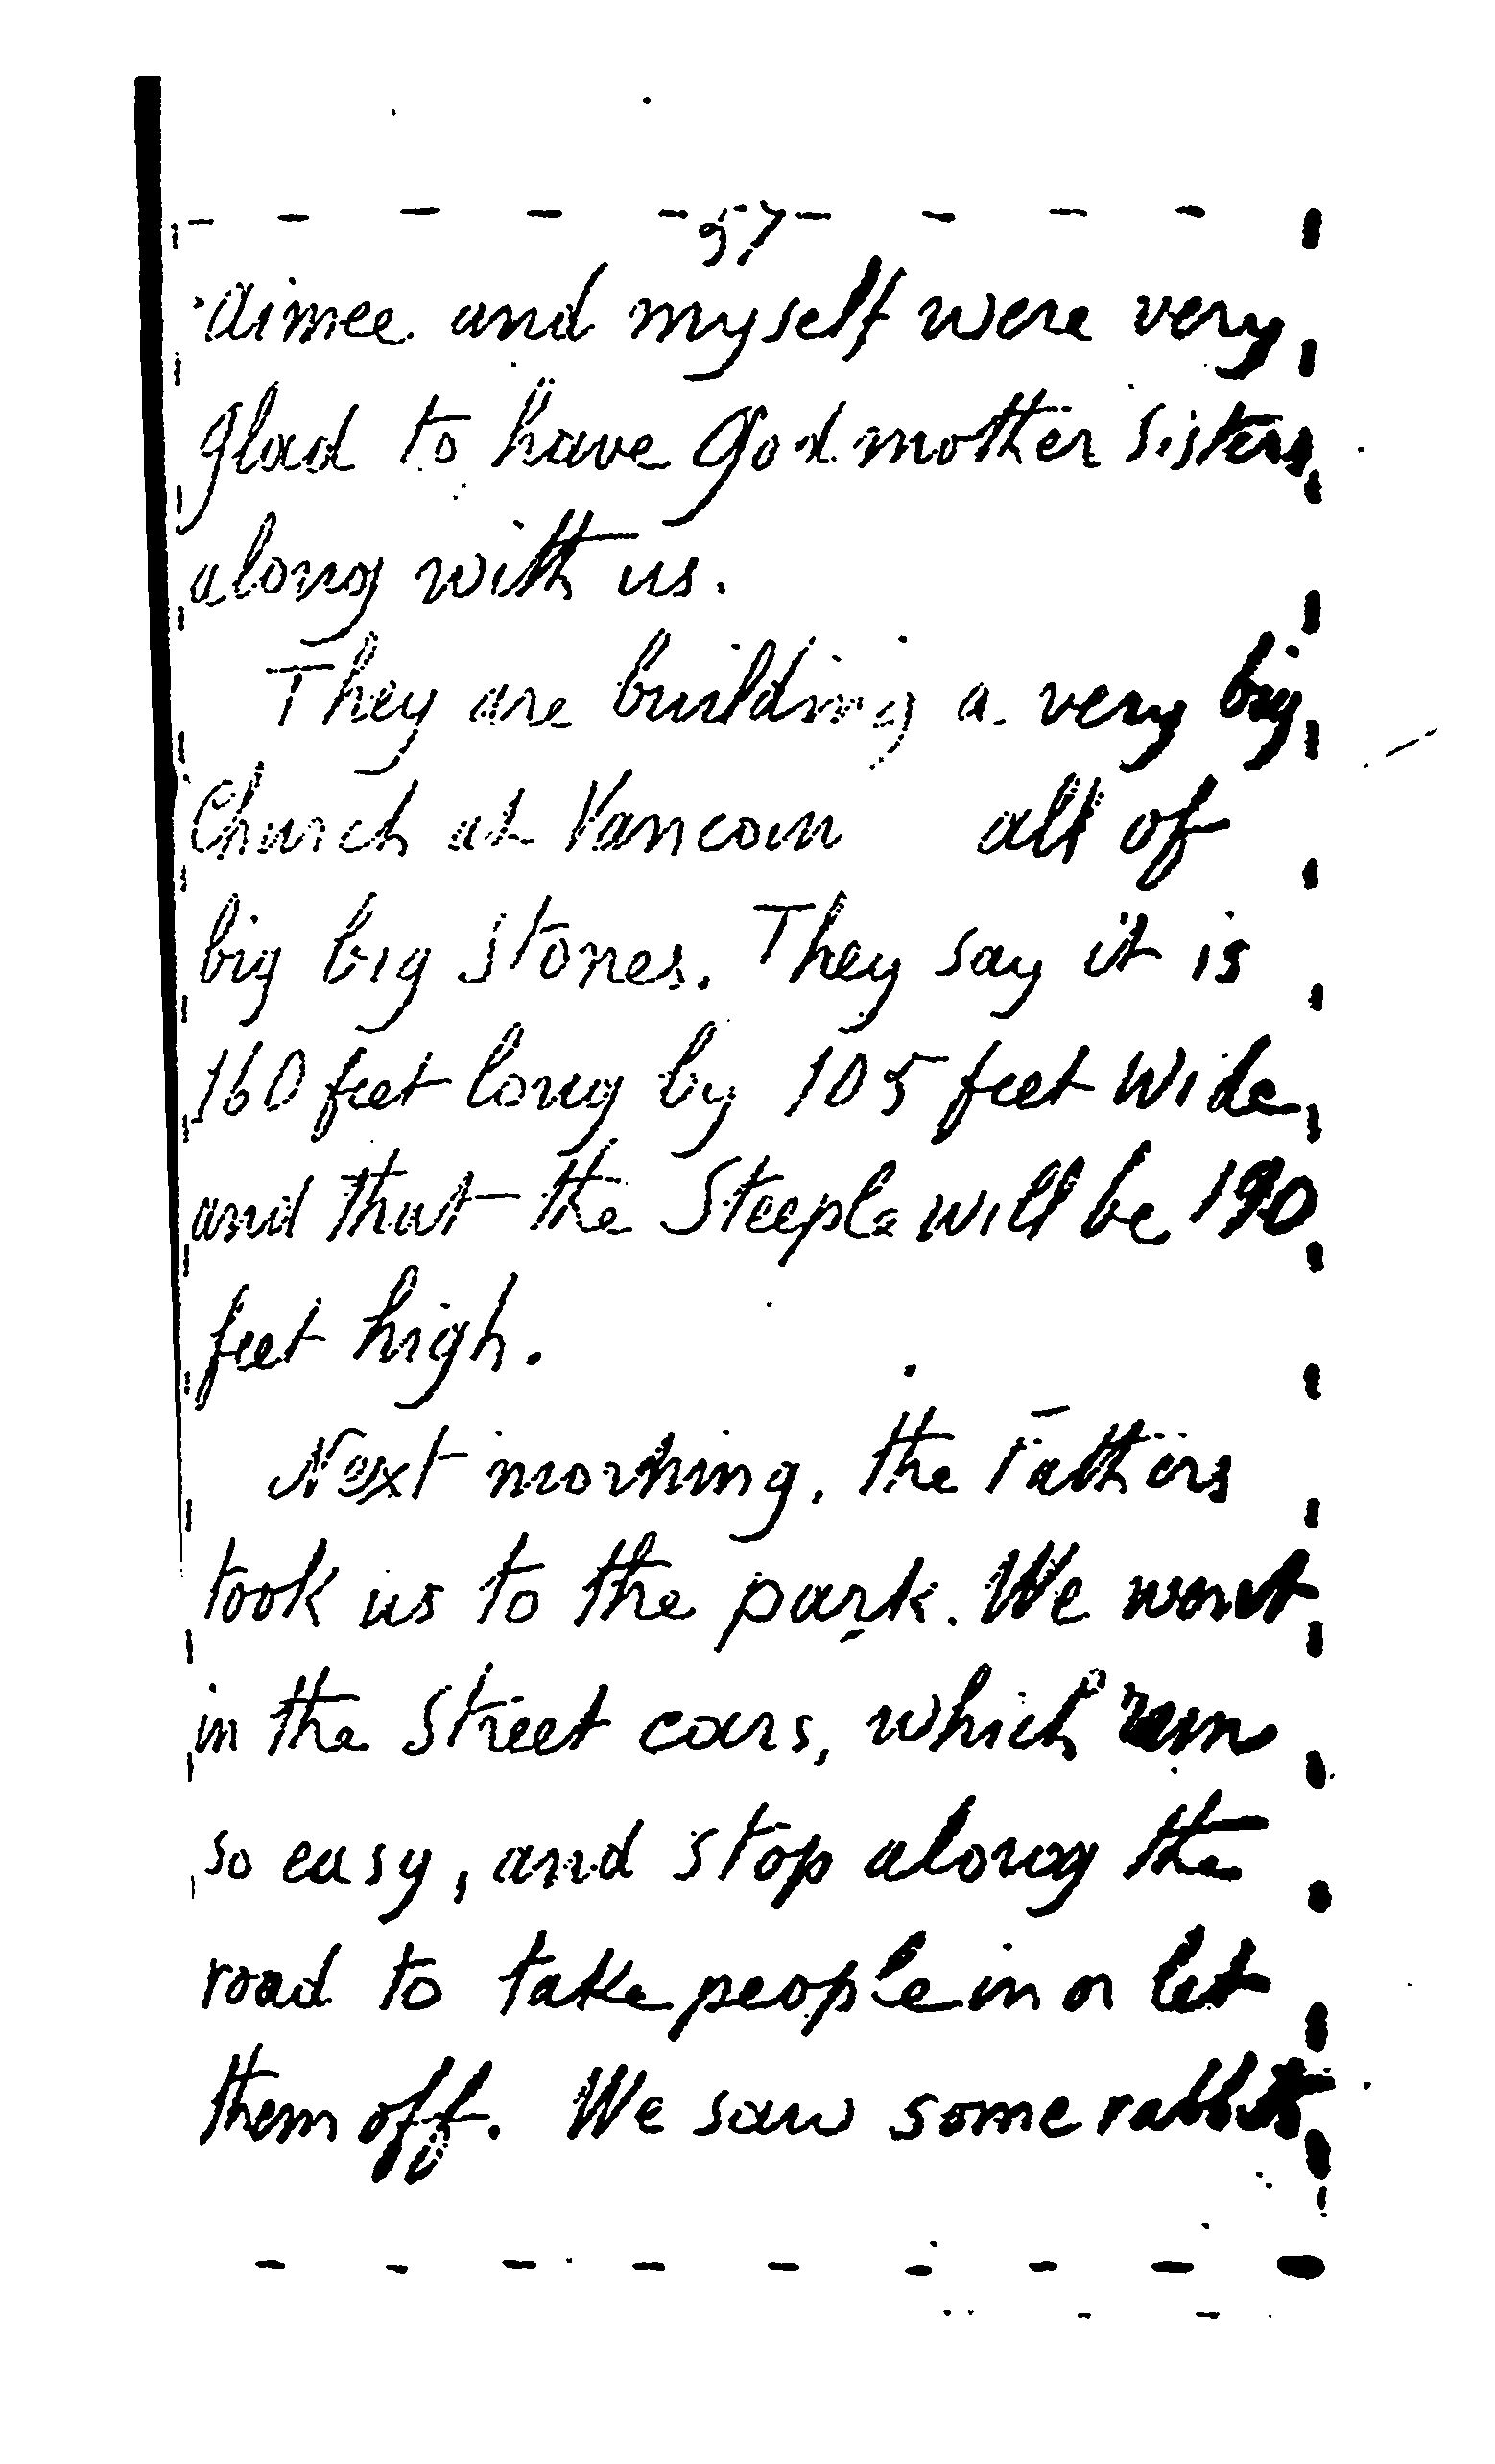 57
Aimee and myself were very
glad to have Godmother Sisters
along with us.
They are building a very big
Church at Vancouv all of
big big stones. They say it is
160 feet long by 105 feet wide
and that the Steeple will be 190
feet high.
Next morning, the Fathers
took us to the park. We went
in the Street cars, which run
so easy, and stop along the
road to take people in or let
them off. We saw some rabbits